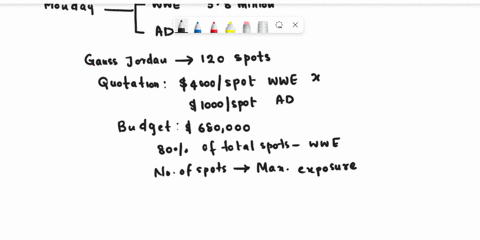 Monday WWE 5.8 million
AD
Gauss Jordan → 120 spots
Quotation: $4000/spot WWE x
$1000/spot AD
Budget: $680,000
80% of total spots - WWE
No. of spots → Max. exposure